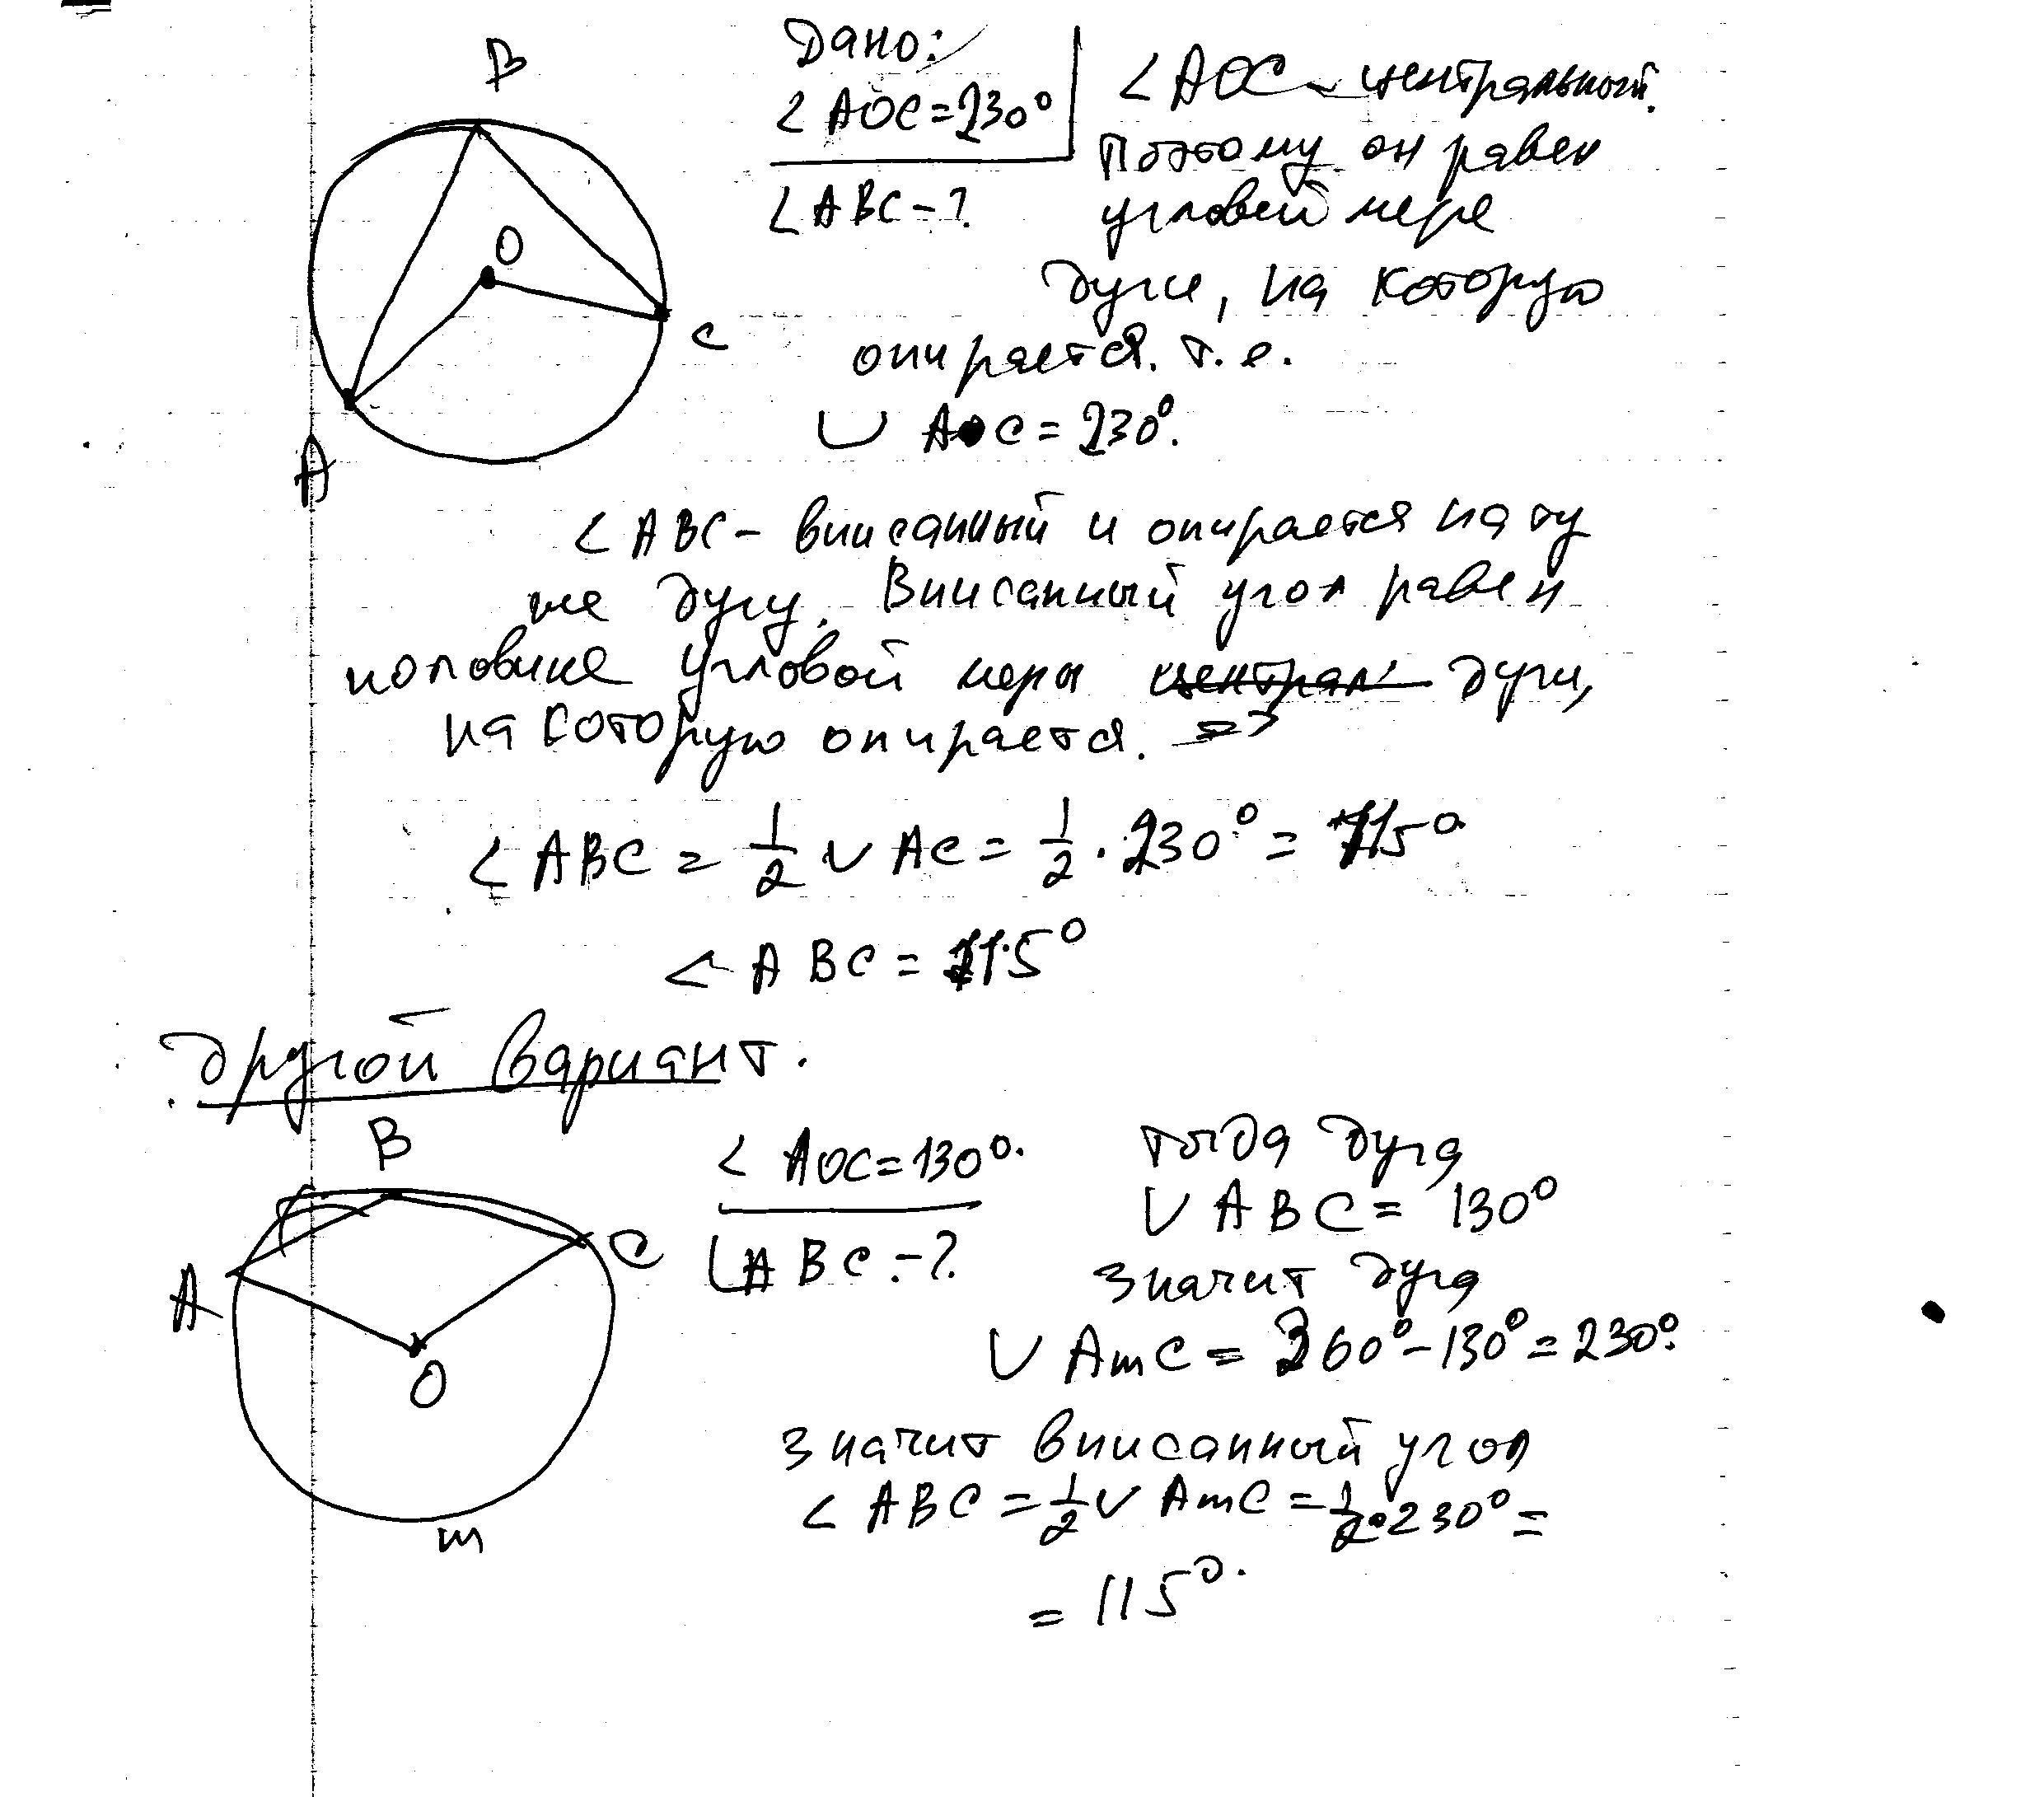 B
O
C
A
Дано:
∠AOC=230°
∠ABC-?
∠AOC - центральный.
Поэтому он равен
угловой мере
дуги, на которую
опирается. т.е.
∪ AC = 230°.
∠ABC - вписанный и опирается на ту
же дугу. Вписанный угол равен
половине угловой меры централ дуги,
на которую опирается. =>
∠ABC = 1/2 ∪ AC = 1/2 · 230° = 115°
∠ABC = 115°
Другой вариант.
B
A
C
O
m
∠AOC=130°.
∠ABC.-?
тогда дуга
∪ABC = 130°
значит дуга
∪ AmC = 360°-130°=230°.
значит вписанный угол
∠ABC = 1/2 ∪ AmC = 1/2·230° =
= 115°.